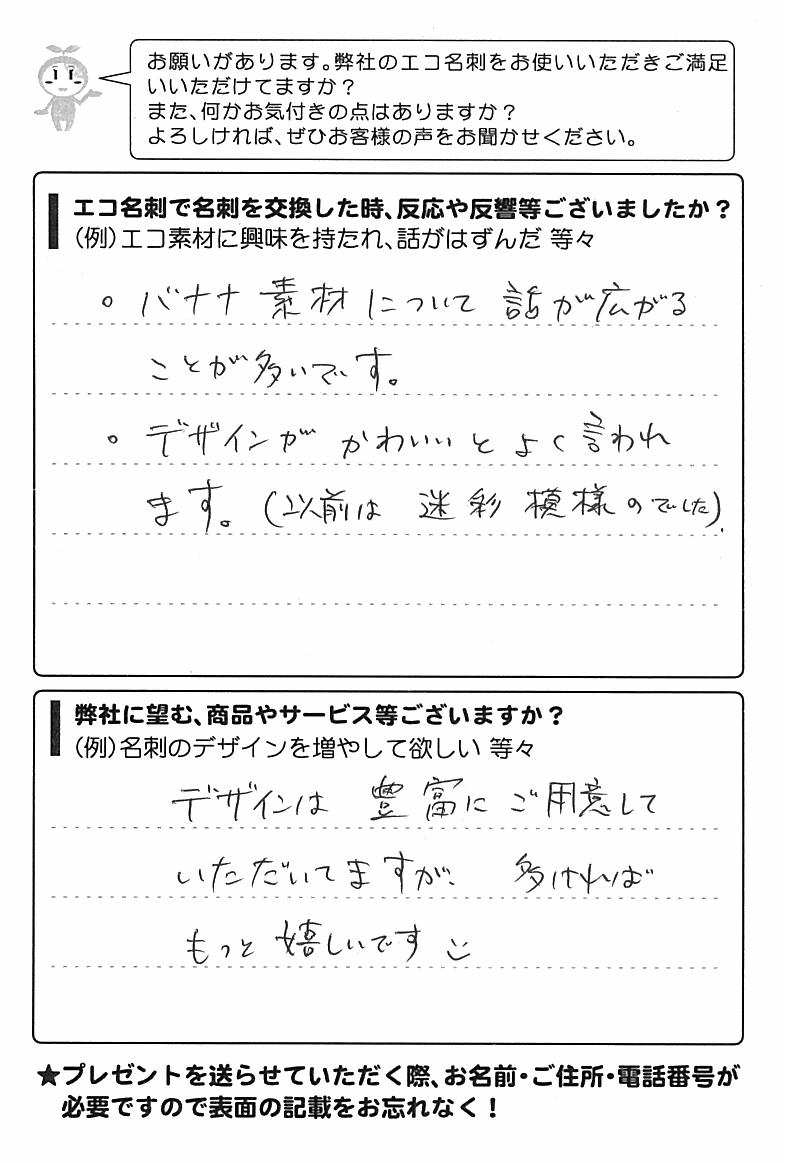 お願いがあります。弊社のエコ名刺をお使いいただきご満足
いいただけてますか？
また、何かお気付きの点はありますか？
よろしければ、ぜひお客様の声をお聞かせください。
エコ名刺で名刺を交換した時、反応や反響等ございましたか？
（例）エコ素材に興味を持たれ、話がはずんだ 等々
。バナナ素材について 話が広がる
ことが多いです。
。デザインが かわいいと よく言われ
ます。(以前は 迷彩 模様のでした).
弊社に望む、商品やサービス等ございますか？
（例）名刺のデザインを増やして欲しい 等々
デザインは 豊富に ご用意して
いただいてますが、 多ければ
もっと 嬉しいです
★プレゼントを送らせていただく際、お名前・ご住所・電話番号が
必要ですので表面の記載をお忘れなく！